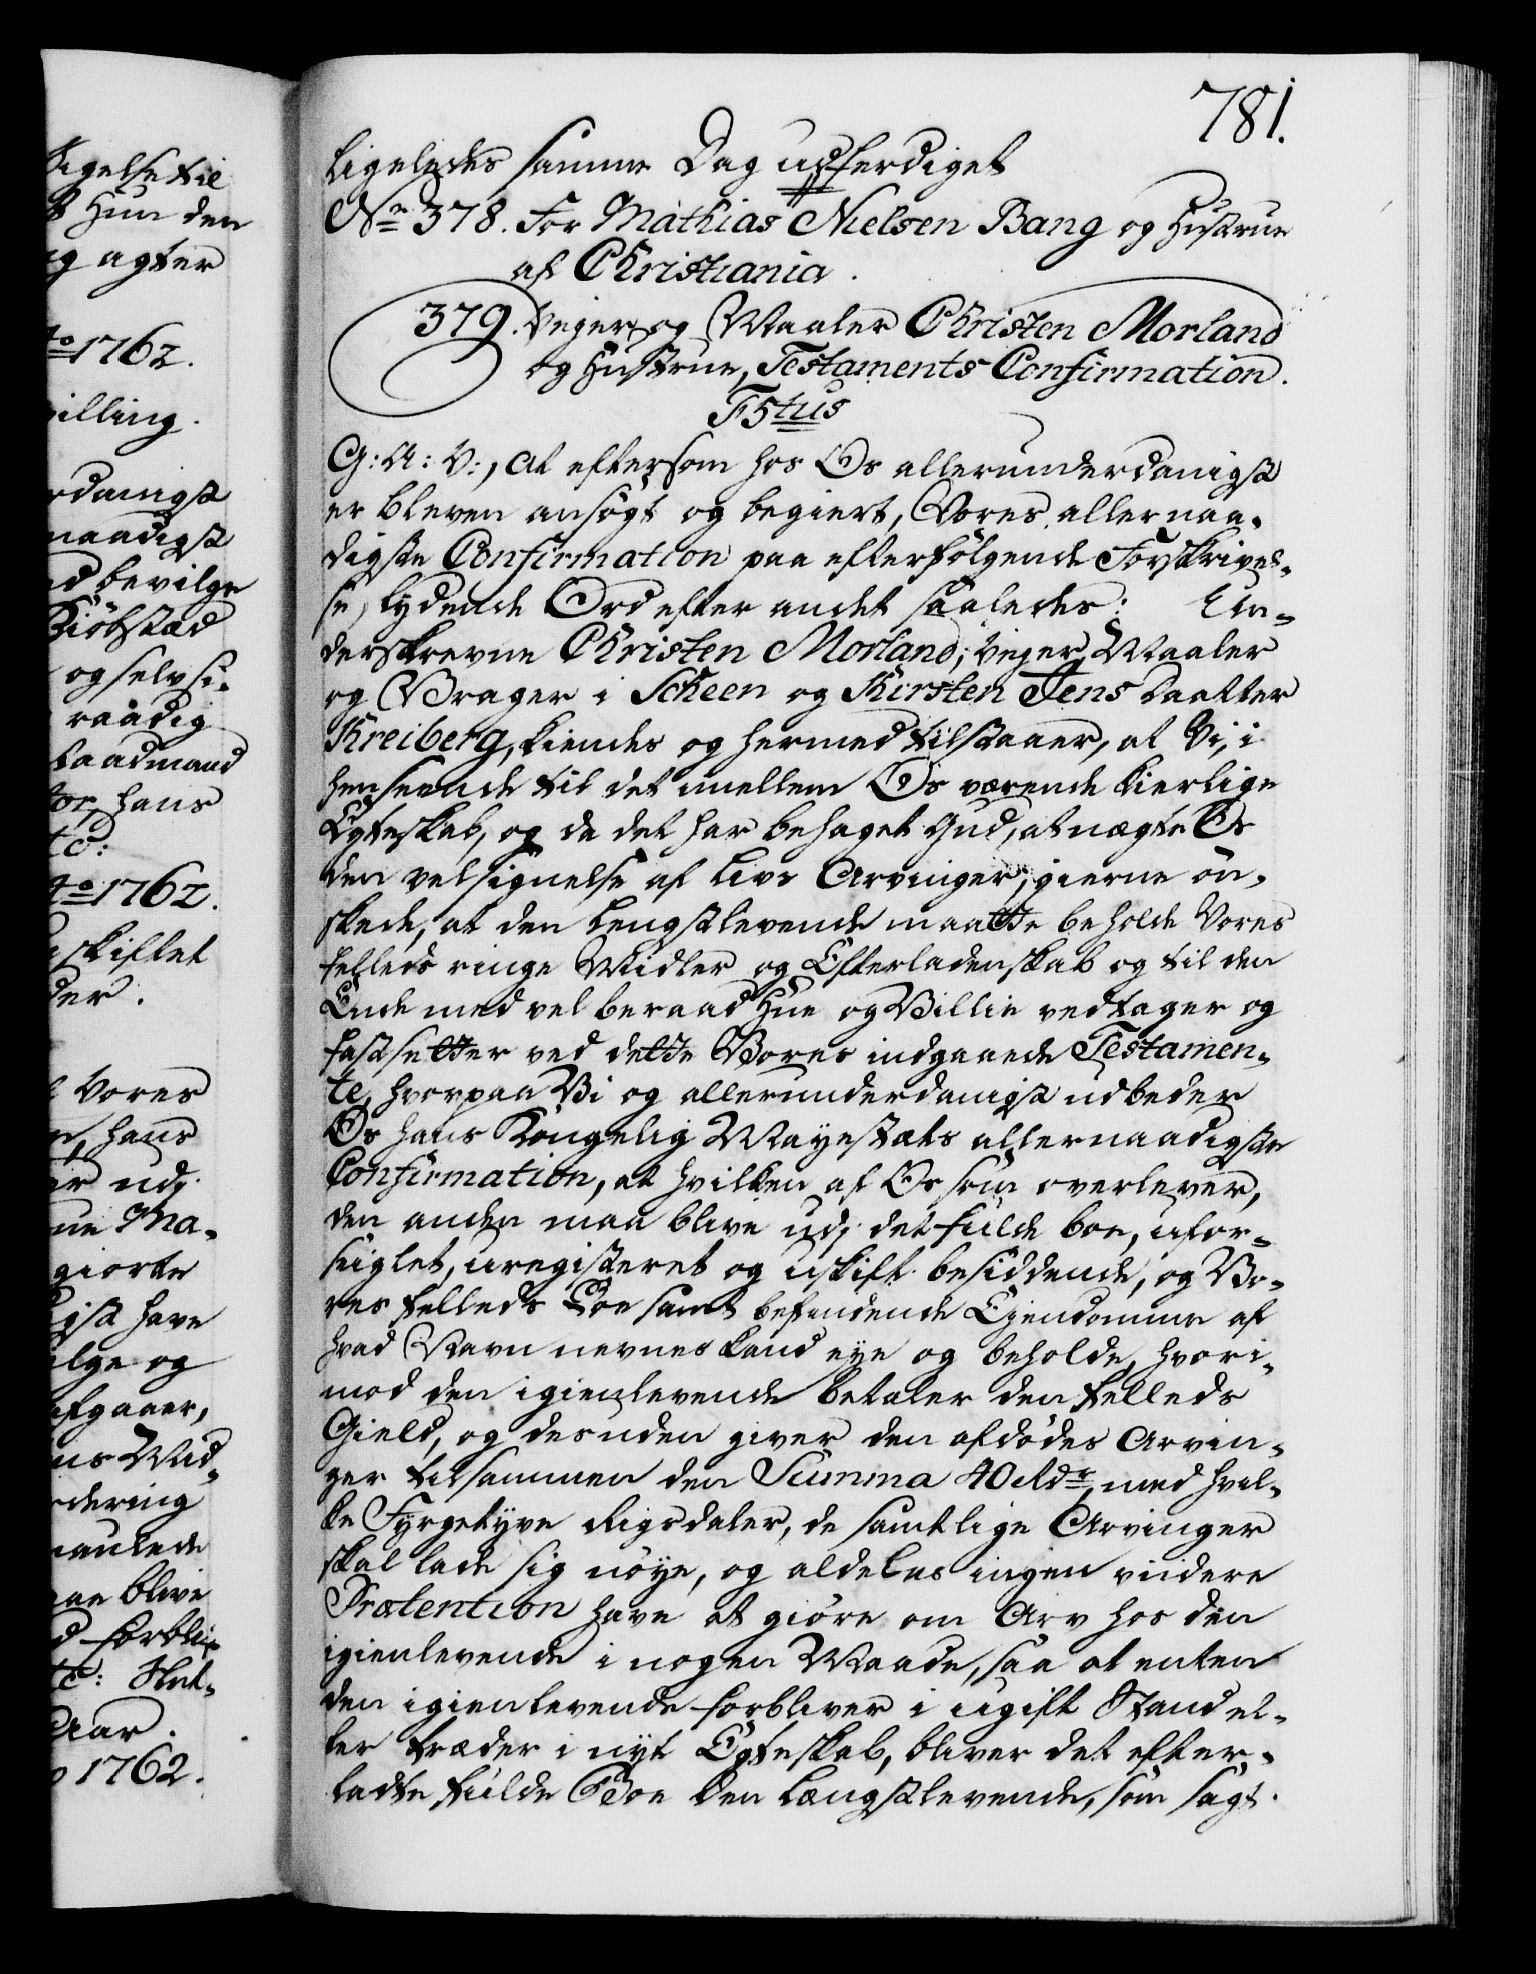 781.
ligeledes samme Dag udferdiget
No 378. For Mathias Nielsen Bang og Hustrue
af Christiania.
379. Vejer og Maaler Christen Morland
og Hustrue, Testaments Confirmation.
F5tus
G: A: V:, At eftersom hos Os allerunderdanigst
er bleven ansøgt og begiert, Vores allernaa-
digste Confirmation paa efterfølgende Forskrivel-
se, lydende Ord efter andet saaledes: Un-
derskrevne Christen Morland, Vejer, Maaler
og Vrager i Scheen og Kirsten Jens Daatter
Kreiberg, kiendes og hermed tilstaaer, at Vi, i
henseende til det imellem Os værende kierlige
Egteskab, og da det har behaget Gud, at nægte Os
den velsignelse af Livs Arvinger, gierne øn-
skede, at den Lengstlevende maatte beholde Vores
felleds ringe Midler og Efterladenskab og til den
Ende med vel beraad Hue og Villie vedtager og
fastsetter ved dette Vores indgaaede Testamen-
te, hvorpaa Vi og allerunderdanigst udbeder
Os Hans Kongelig Mayestæts allernaadigste
Confirmation, at hvilken af Os som overlever,
den anden maa blive udj det fulde boe, ufor-
seiglet, uregisteret og uskift besiddende, og Vo-
res felleds Boe samt befindende Ejendomme af
hvad Navn nevnes kand eye og beholde, hvori-
mod den igienlevende betaler den felleds
Gield, og desuden giver den afdødes Arvin-
ger tilsammen den Summa 40 Rdr, med hvil-
ke Fyrgetyve Rigsdaler, de samtlige Arvinger
skal lade sig nøye, og aldeles ingen viidere
Prætention have at giøre om Arv hos den
igienlevende i nogen Maade, saa at enten
den igienlevende forbliver i ugift Stand el-
ler træder i nyt Egteskab, bliver det efter-
ladte fulde Boe den Længstlevende, som sagt.